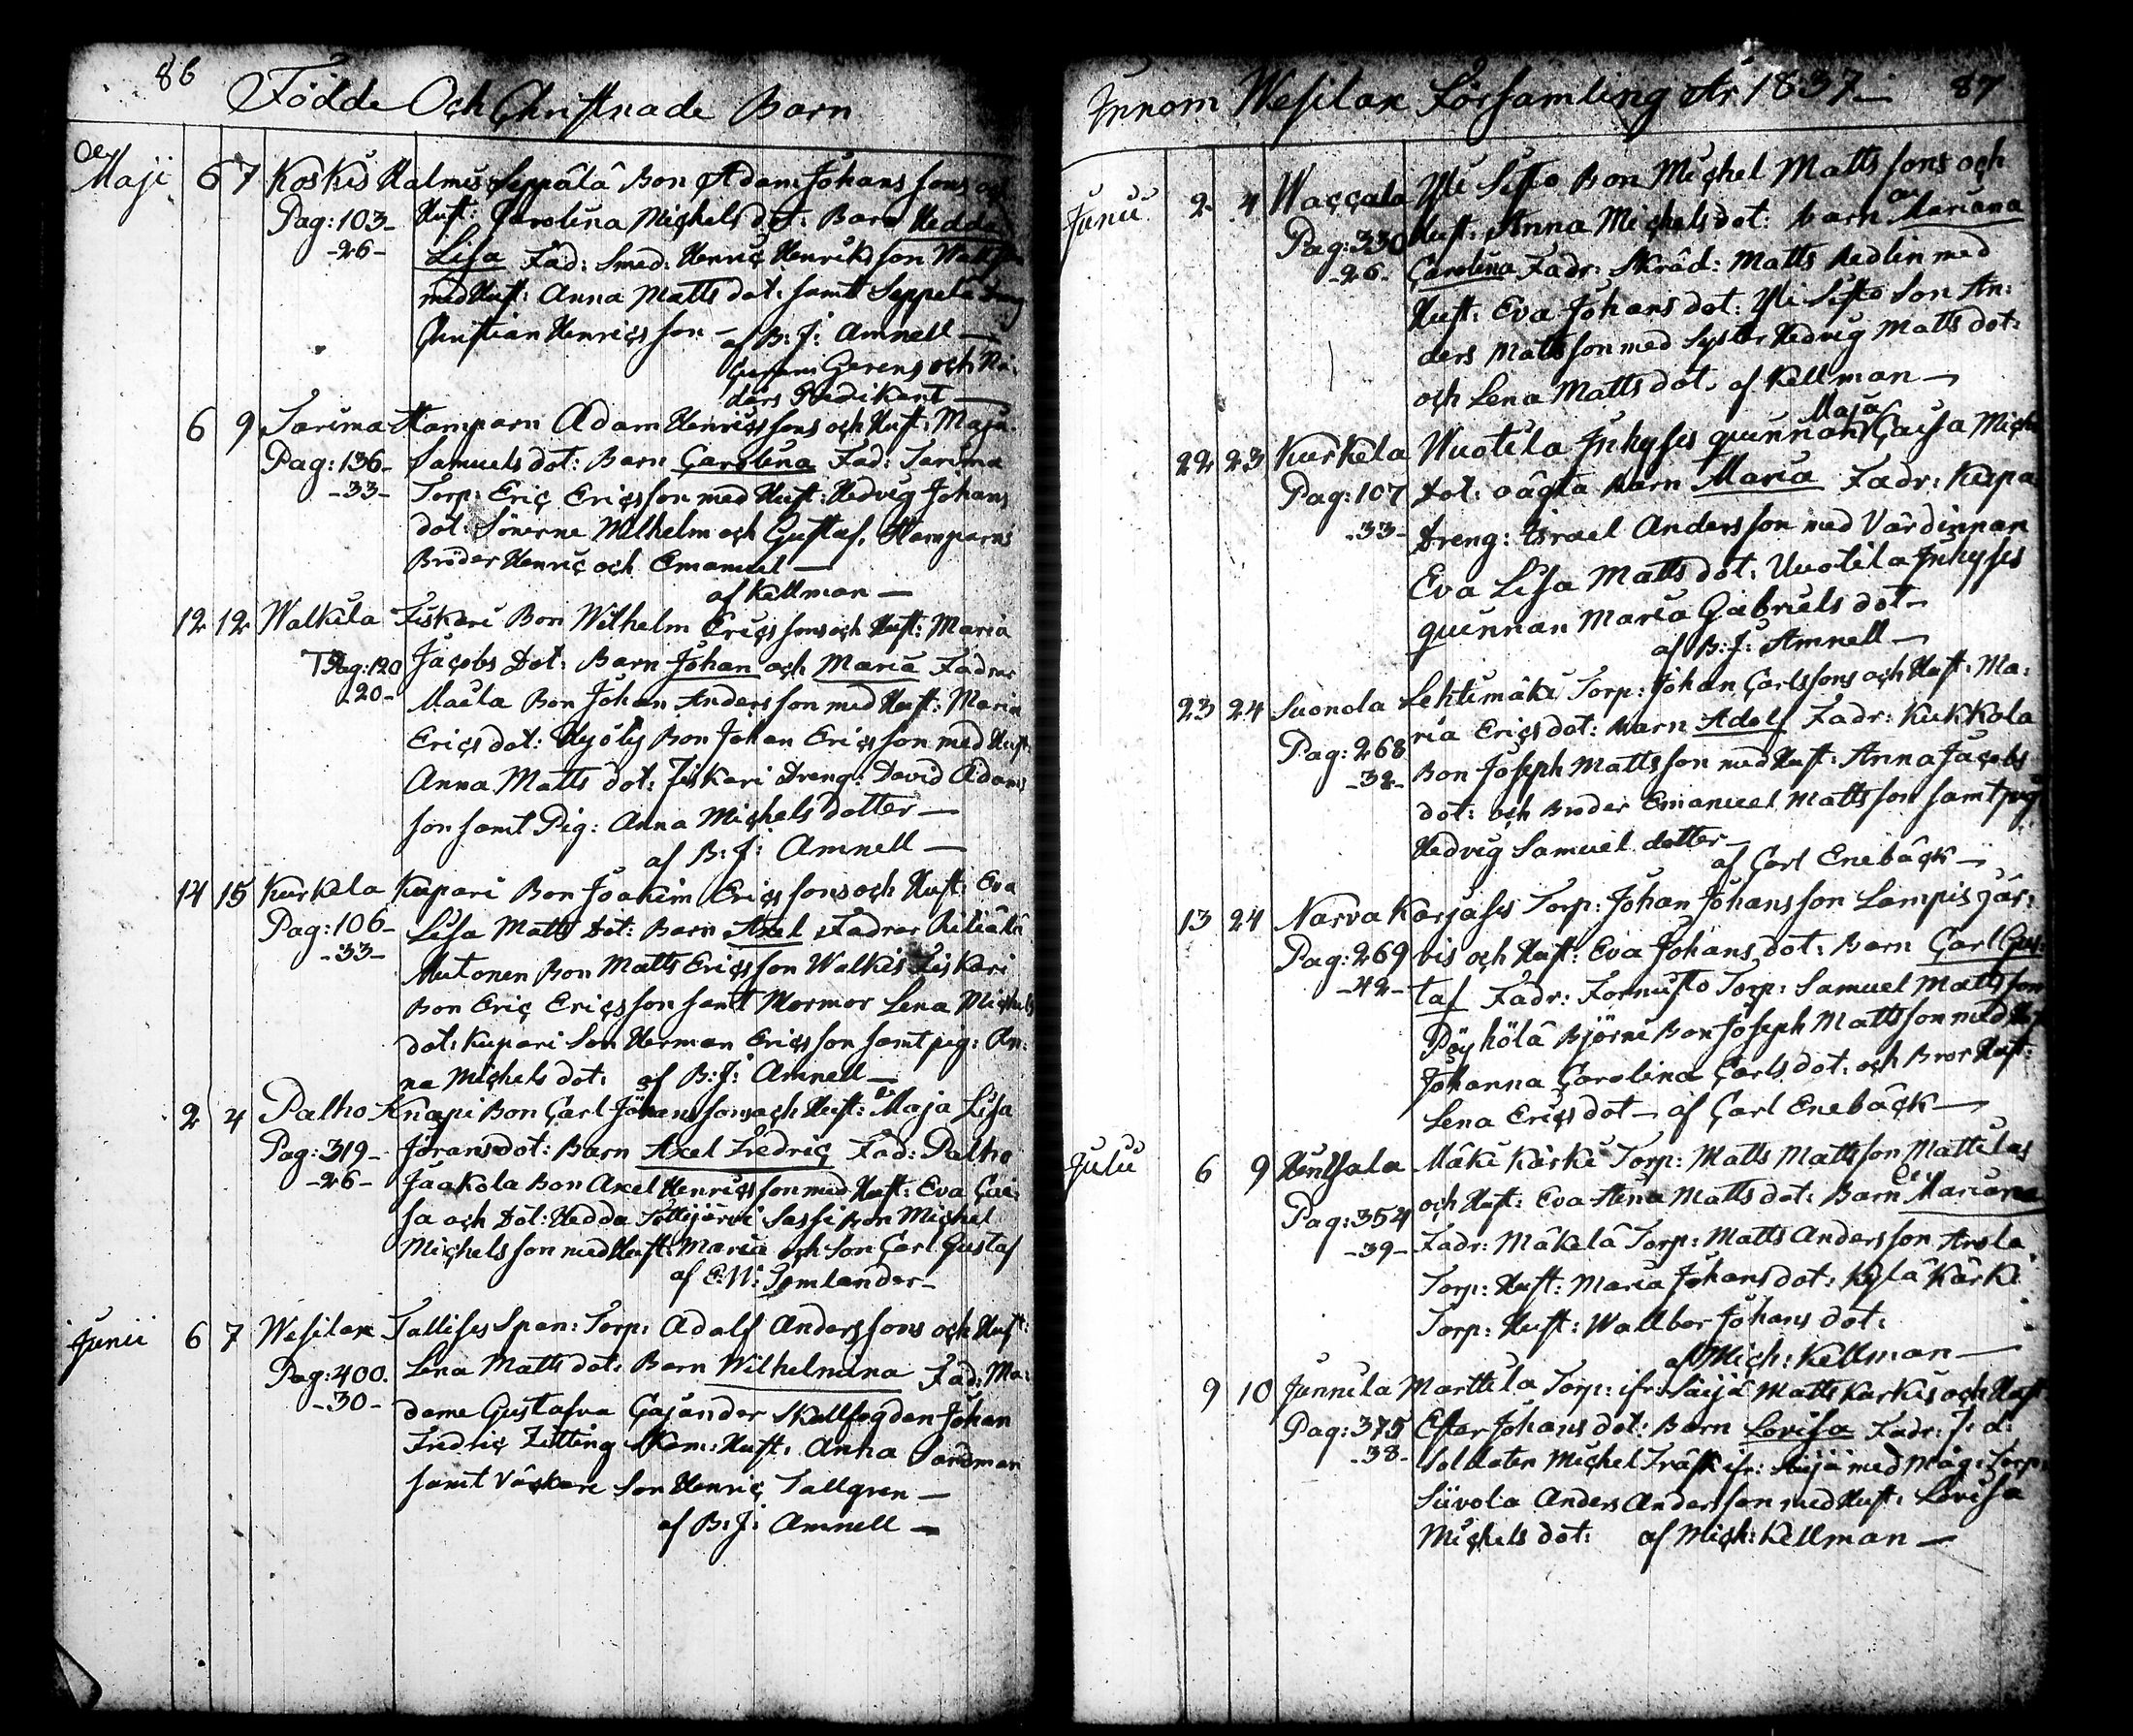 86
Födde Och Christnade Barn
Maji 6 7 Koskis Nalmis Seppälä Bon Adam Johans sons och
Pag: 103 Hust: Carolina Michels dot: Barn Hedda
-26- Lisa Fad: Smed: Henric Henriksson
med Hust: Anna Matts dot: samt Seppälä
Christian Henrics son - af B: J: Amnell -
Gerens och
ders Predikant -
6 9 Sarima Hamparn Adam Henricssons och Hust: Maja
Pag: 136- Samuels dot: Barn Carolina Fad: Sarima
-33- Torp: Eric Ericsson med Hust: Hedvig Johans
dot: Sönerne Wilhelm och Gustaf, Hamparns
Bröder Henric och Emanuel -
af Kellman -
12 12 Walkila Fiskari Bon Wilhelm Ericssons och Hust: Maria
Pag: 120 Jacobs Dot: Barn Johan och Maria Fadrar
20- Maila Bon Johan Andersson med Hust: Maria
Erics dot: Uyöly Bon Johan Ericsson med Hust:
Anna Matts dot: Fiskari Dreng: David Adams
son samt Pig: Anna Michels dotter -
af B: J: Amnell -
14 15 Kurkela Kupari Bon Joakim Ericssons och Hust: Eva
Pag: 106- Lisa Matts Dot: Barn Axel Fadrar
-33- Mutonen Bon Matts Ericsson Walkis Fiskari
Bon Eric Ericsson samt Mormor Lena Michels
dot: Kupari Son Herman Ericsson samt pig: An:
na Michels dot: af B: J: Amnell -
2 4 Palho Knapi Bon Carl Johanssons och Hust: Maja Lisa
Pag: 319- Jörans dot: Barn Axel Fredric Fad: Palho
-26- Jaakola Bon Axel Henricsson med Hust: Eva Cai:
sa och Dot: Hedda Sottijärvi Sassi Bon Michel
Michelsson med Hust: Maria och Son Carl Gustaf
af E: W: Tomlander -
Junii 6 7 Wesilax Tallises Span: Torp: Adolf Anderssons och Hust:
Pag: 400. Lena Matts dot: Barn Wilhelmina Fad: Ma:
-30- dame Gustafva Cajander Skallfogden Johan
Fredric Zitting Kam: Hust: Anna Sandman
samt Väckare Son Henric Tallgren -
af B: J: Amnell -
Innom Wesilax Församling År 1837 - 87
Junii 2 4 Waccala Yli Sisto Bon Michel Matts sons och
Pag: 330 Hust: Anna Michels dot: barn Mariana
-26- Carolina Fadr: Skräd: Matts Hedlin med
Hust: Eva Johans dot: Yli Sisto Son An:
ders Mattsson med Syster Hedvig Matts dot:
och Lena Matts dot: af Kellman -
22 23 Kurkela Wuotila Inhyses quinnan Maja Caisa Michels
Pag: 107 Dot: oägta barn Maria Fadr: Kupa
-33- Dreng: Israel Andersson med Värdinnan
Eva Lisa Matts dot: Wuotila Inhyses
quinnan Maria Gabriels dot -
af B: J: Amnell -
23 24 Suonola Lehtimäki Torp: Johan Carlssons och Hust: Ma:
Pag: 268 ria Erics dot: barn Adolf Fadr: Kukkola
-32- Bon Joseph Mattsson med Hust: Anna Jacobs
dot: och Broder Emanuel Mattsson samt pig:
Hedvig Samuel dotter -
af Carl Enebäck -
13 24 Narva Karjases Torp: Johan Johansson Lampis jär:
Pag: 269 vis och Hust: Eva Johans dot: Barn Carl Gus:
-42- taf Fadr: Fornusto Torp: Samuel Mattsson
Pöyhölä Björni Bon Joseph Mattsson med Hust:
Johanna Carolina Carls dot: och Bror Hust:
Lena Erics dot - af Carl Enebäck -
Julii 6 9 Hentsala Mäki Kärki Torp: Matts Mattsson Mattilas
Pag: 354 och Hust: Eva Stina Matts dot: Barn Mariana
-39- Fadr: Mäkelä Torp: Matts Andersson Arola
Torp: Hust: Maria Johans dot: Kylä Kärki
Torp: Hust: Wallbor Johans dot:
af Mich: Kellman -
9 10 Junnila Marttila Torp: ifr: Säijä Matts Karkis och Hust:
Pag: 375 Ester Johans dot: Barn Lovisa Fadr: f: d:
-38- Soldaten Michel Träsk ifr: Säijä med Måg: Torp:
Siivola Anders Andersson med Hust: Lovisa
Michels dot: af Mich: Kellman -